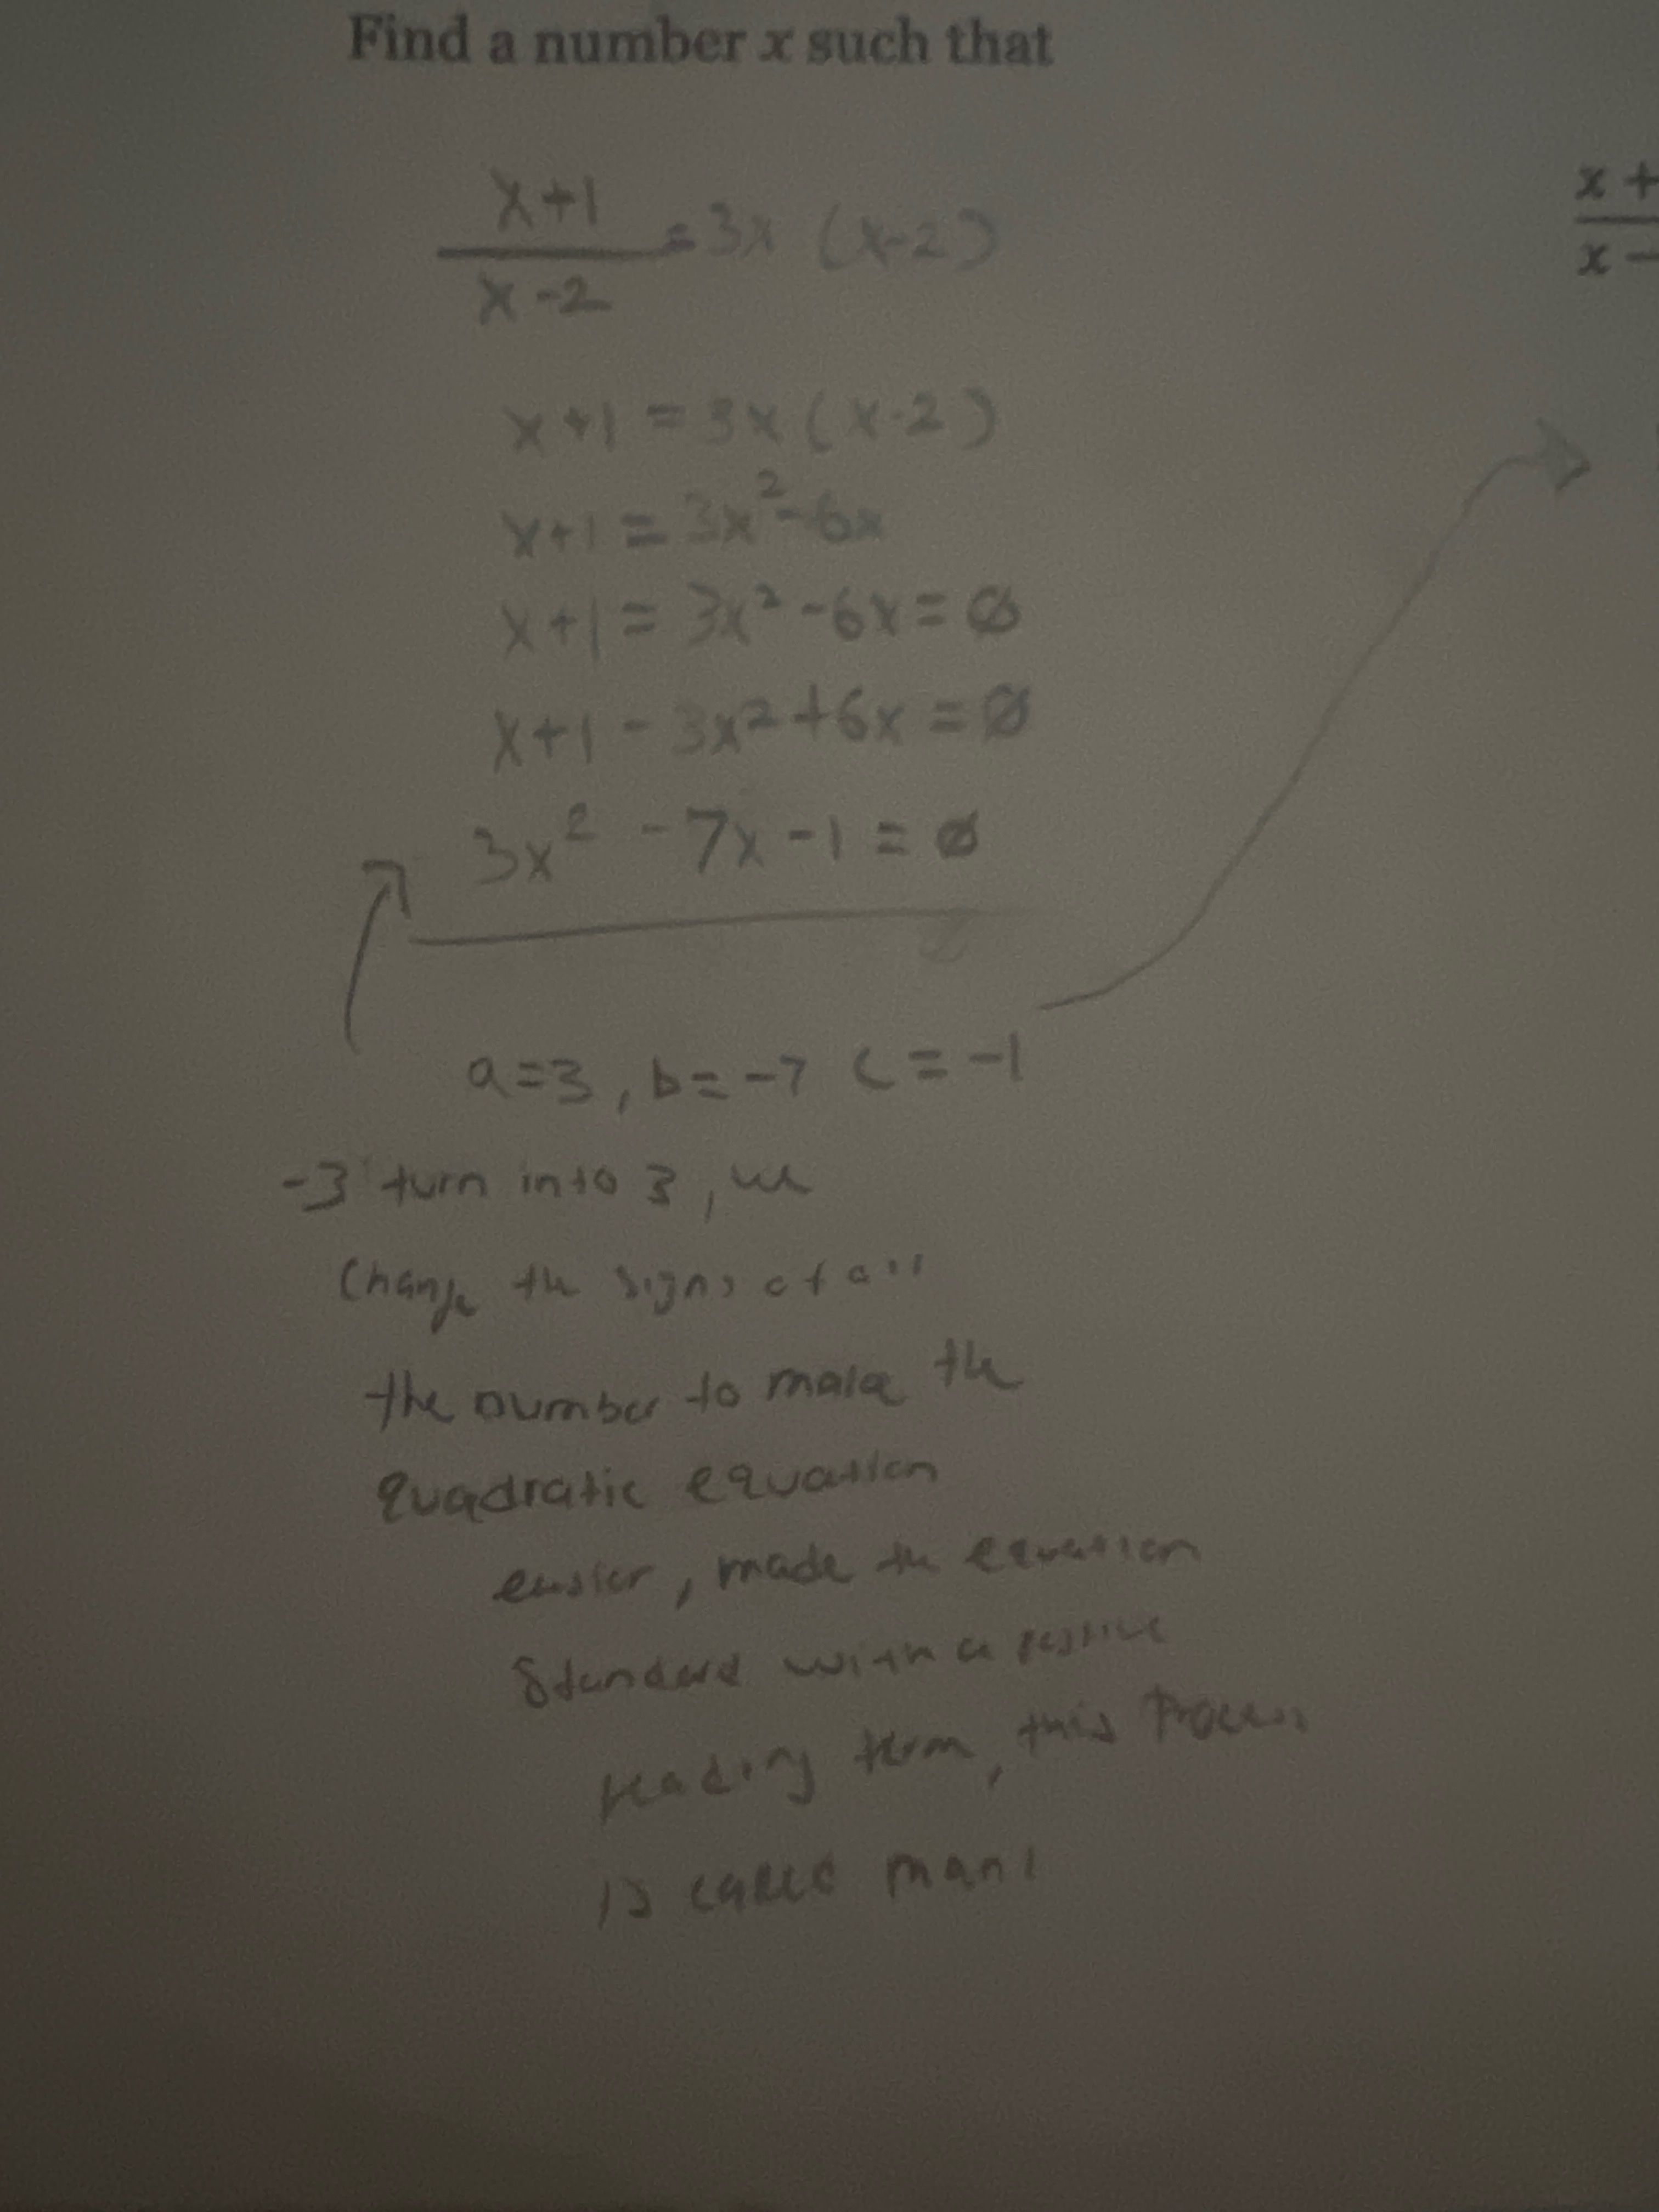 Find a number x such that
x+1
x-2
=3x (x-2)
x +
x −
x+1 = 3x (x-2)
x+1 = 3x²-6x
x+1 = 3x² -6x = 0
x+1 - 3x² +6x = 0
3x² -7x -1 = 0
a=3, b=-7 c=-1
-3 turn into 3, we
Change the signs of all
the number to make the
quadratic equation
easier, made the equation
Standard with a positive
leading term, this process
is called